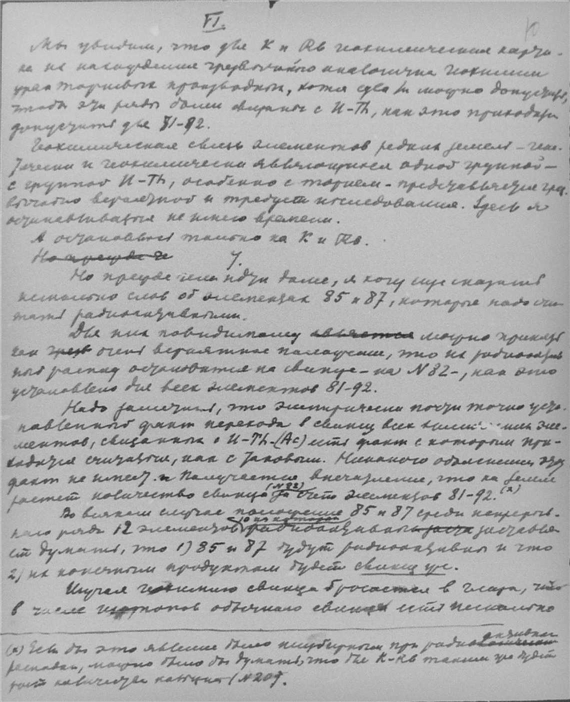 VI.
Мы увидим, что для K и Rb геохимическая картина
на нахождения чрезвычайно аналогична геохимии
производных, хотя едва ли можно допустить,
чтобы эти ряды были связаны с U-Th, как это приходится
допустить для 81-92.
Геохимическая связь элементов редких земель - 
и геохимически являющихся одной группой -
с группой U-Th, особенно с торием - представляется
вероятной и требует исследования. Здесь я
останавливаться не имею времени.
Я остановлюсь только на K и Rb.
Но прежде
Но прежде чем идти далее, я хочу еще сказать
несколько слов об элементах 85 и 87, которые надо
считать радиоактивными.
Для них повидимому является можно принять
как очень вероятное положение, что их радиоактивный
распад остановится на свинце - на N 82-, как это
установлено для всех элементов 81-92.
Надо заметить, что эмпирически почти точно
установленный факт перехода в свинец всех
элементов, связанных с U-Th-(Ac) есть факт с которым
приходится считаться, как с таковым. Никакого объяснения этот
факт не имеет. и Получается впечатление, что на земле
растет количество свинца (N 82) за счет элементов 81-92. (x)
Во всяком случае положение 85 и 87 среди
ряда 12 элементов 10 из которых радиоактивны
думать, что 1) 85 и 87 будут радиоактивны и что
2) их конечным продуктом будет свинец же.
Изучая геохимию свинца бросается в глаза, что
в числе изотопов обычного свинца есть несколько
(x) Если бы это явление было при радиоактивном
распаде, можно было бы думать, что для K-Rb таким же будет